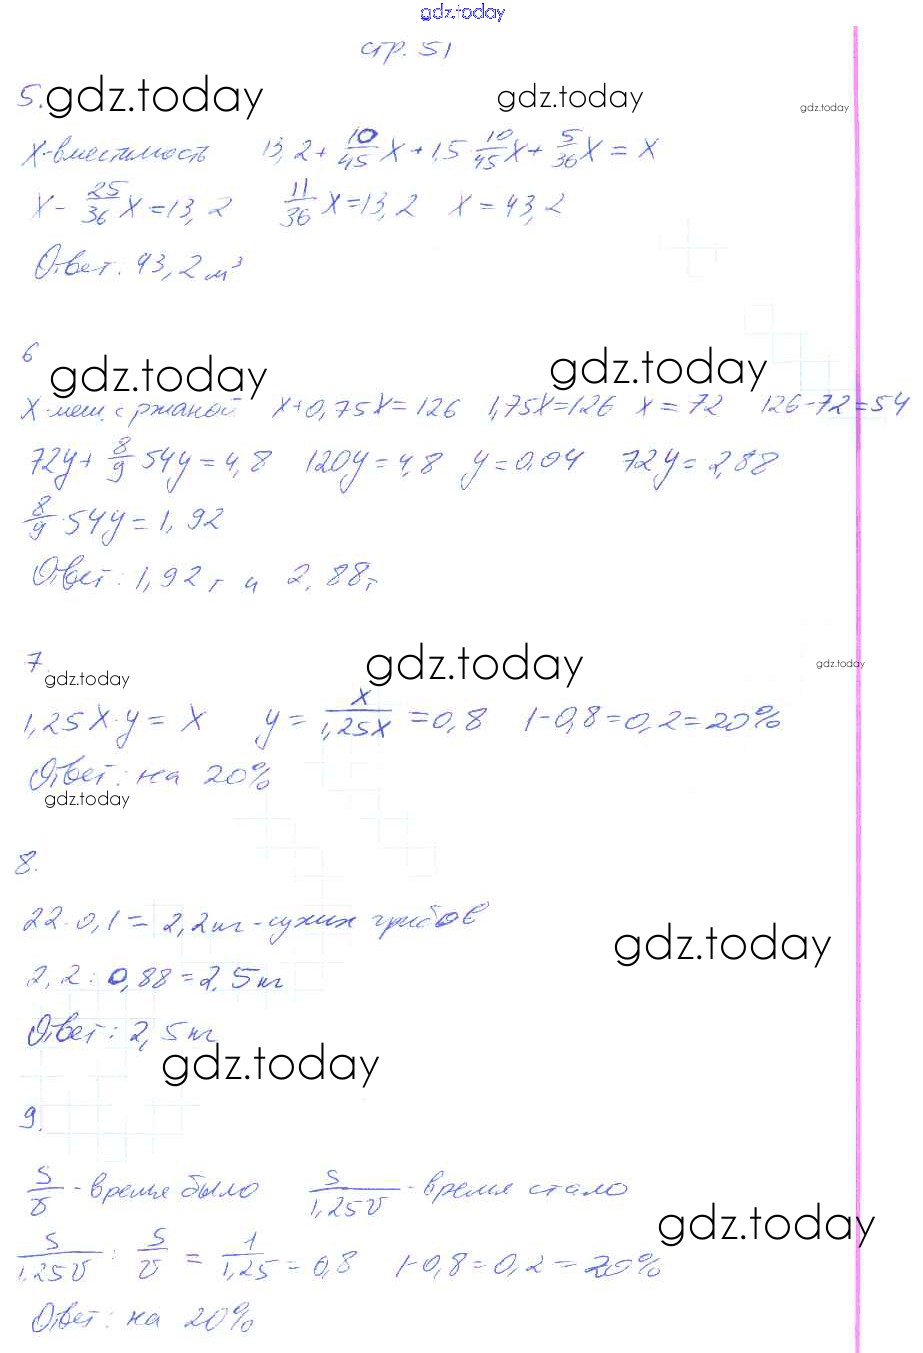 gdz.today
стр. 51
5. gdz.today gdz.today gdz.today
X-вместимость 13,2+10/45X+1,5·10/45X+5/36X=X
X-25/36X=13,2 11/36X=13,2 X=43,2
Ответ: 43,2 м³
6
gdz.today gdz.today
X-меш. с ржаной X+0,75X=126 1,75X=126 X=72 126-72=54
72y+8/9·54y=4,8 120y=4,8 y=0,04 72y=2,88
8/9·54y=1,92
Ответ: 1,92 т и 2,88 т
7. gdz.today gdz.today gdz.today
1,25X·y=X y=X/1,25X=0,8 1-0,8=0,2=20%
Ответ: на 20%
gdz.today
8.
22·0,1=2,2кг-сухих грибов
gdz.today
2,2:0,88=2,5кг
Ответ: 2,5кг
gdz.today
9.
S/v-время было S/1,25v-время стало
gdz.today
S/1,25v:S/v=1/1,25=0,8 1-0,8=0,2=20%
Ответ: на 20%